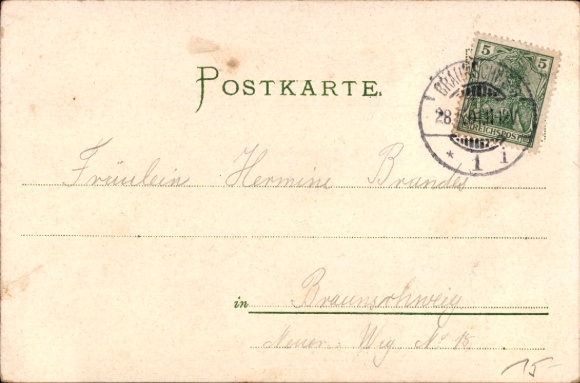 POSTKARTE.
5 5
REICHSPOST
28.
11-12V
* 1 i
Fräulein Hermine Brandes
in Braunschweig
Neuer-Weg No 18.
15-